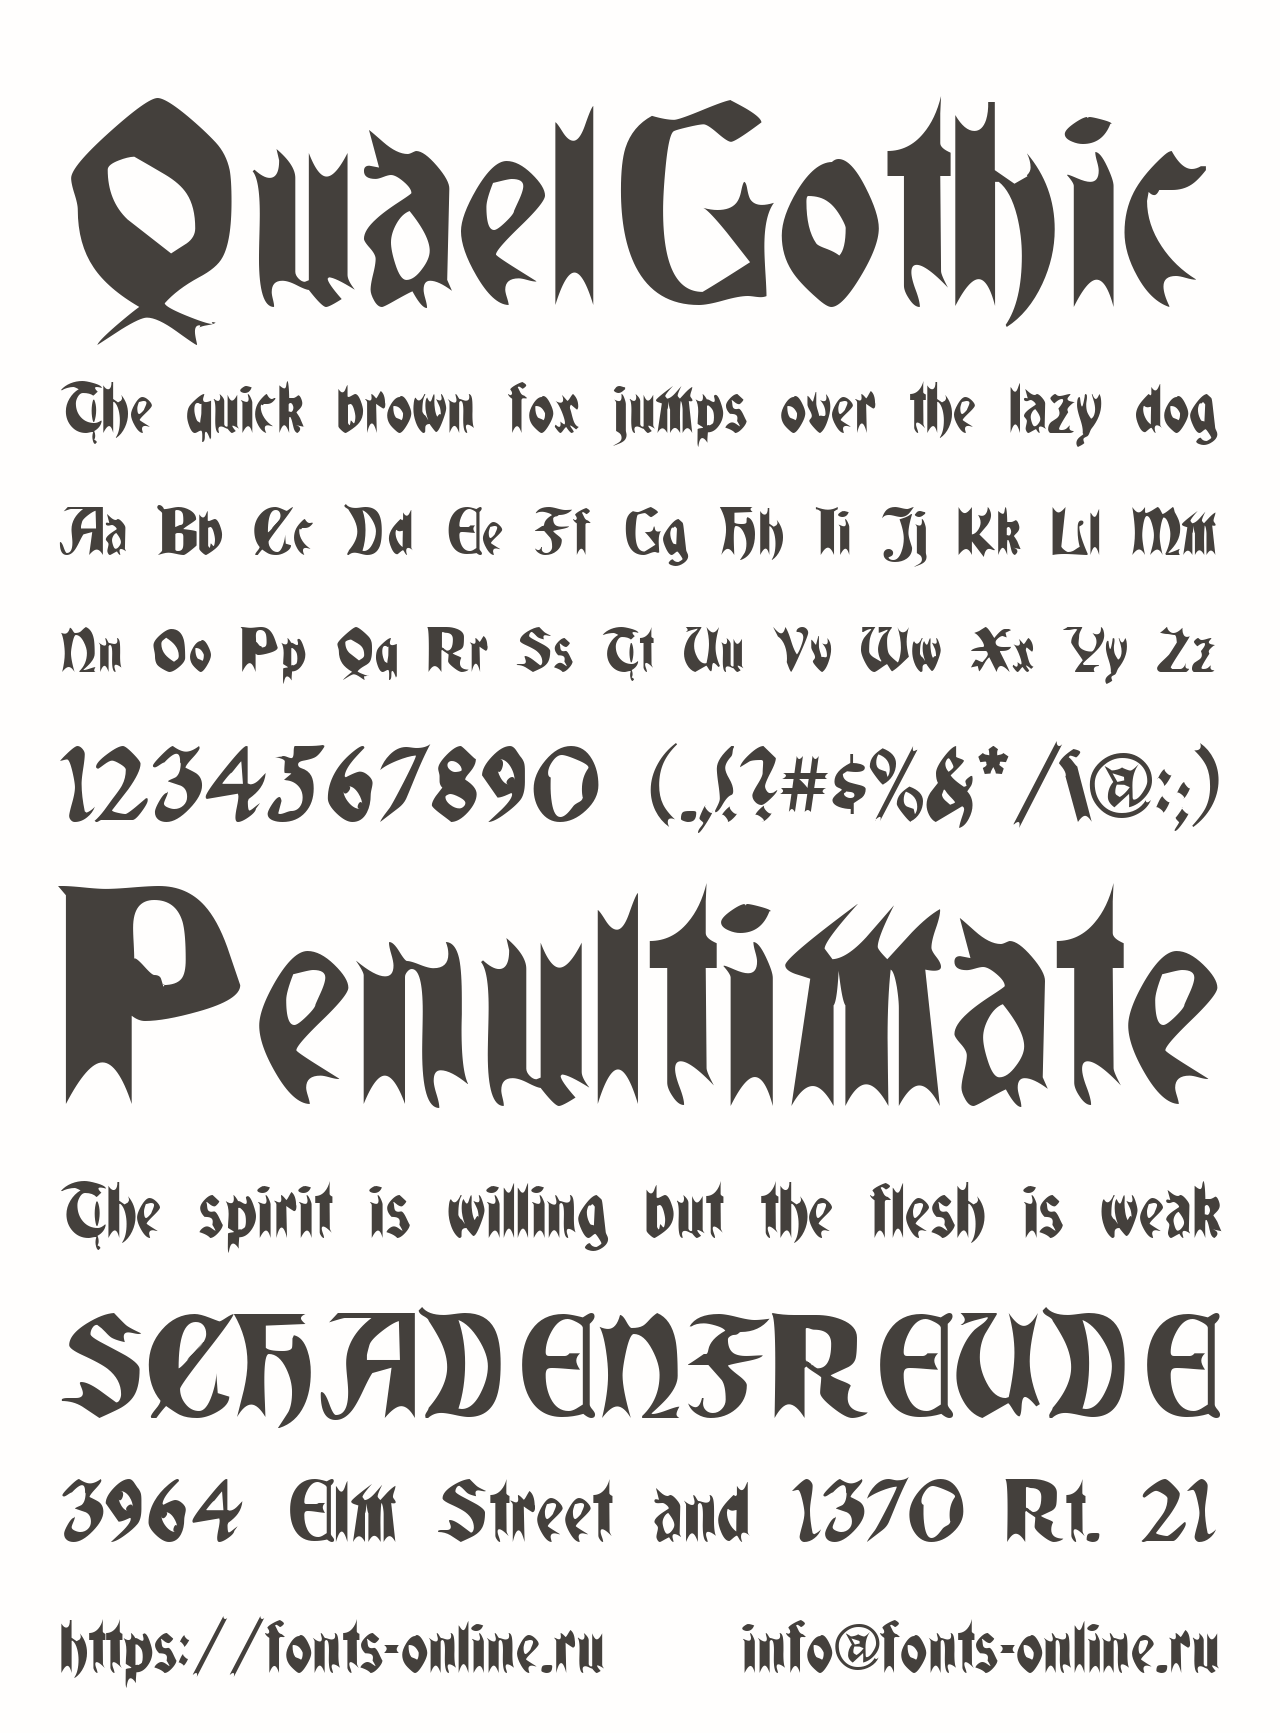 QuaelGothic
The quick brown fox jumps over the lazy dog
Aa Bb Cc Dd Ee Ff Gg Hh Ii Jj Kk Ll Mm
Nn Oo Pp Qq Rr Ss Tt Uu Vv Ww Xx Yy Zz
1234567890 (.,!?#$%&*/\@:;)
Penultimate
The spirit is willing but the flesh is weak
SCHADENFREUDE
3964 Elm Street and 1370 Rt. 21
https://fonts-online.ru info@fonts-online.ru